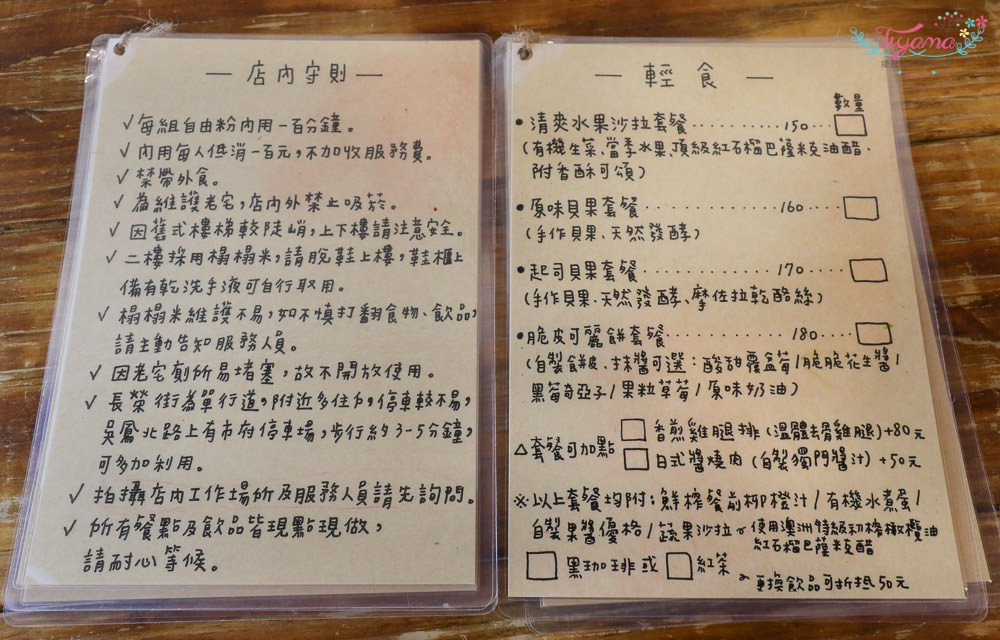 — 店內守則 —
✓每組自由粉內用一百分鐘。
✓內用每人低消一百元,不加收服務費。
✓禁帶外食。
✓為維護老宅,店內外禁止吸菸。
✓因舊式樓梯較陡峭,上下樓請注意安全。
✓二樓採用榻榻米,請脫鞋上樓,鞋櫃上
備有乾洗手液可自行取用。
✓榻榻米維護不易,如不慎打翻食物、飲品,
請主動告知服務人員。
✓因老宅廁所易堵塞,故不開放使用。
✓長榮街為單行道,附近多住戶,停車較不易,
吳鳳北路上有市府停車場,步行約3-5分鐘,
可多加利用。
✓拍攝店內工作場所及服務人員請先詢問。
✓所有餐點及飲品皆現點現做,
請耐心等候。
Tiyama
— 輕食 —
數量
•清爽水果沙拉套餐..........150...□
(有機生菜、當季水果、頂級紅石榴巴薩米克油醋、
附香酥可頌)
•原味貝果套餐..........160...□
(手作貝果、天然發酵)
•起司貝果套餐..........170...□
(手作貝果、天然發酵、摩佐拉乾酪絲)
•脆皮可麗餅套餐..........180...□
(自製餅皮、抹醬可選:酸甜覆盆莓/脆脆花生醬/
黑葡萄亞子/果粒草莓/原味奶油)
△套餐可加點 □香煎雞腿排(溫體去骨雞腿)+80元
□日式醬燒肉(自製獨門醬汁)+50元
※以上套餐均附:鮮榨餐前柳橙汁/有機水煮蛋/
自製果醬優格/蔬果沙拉~使用澳洲特級初榨橄欖油
紅石榴巴薩米克醋
□黑咖啡或□紅茶
~更換飲品可折抵50元